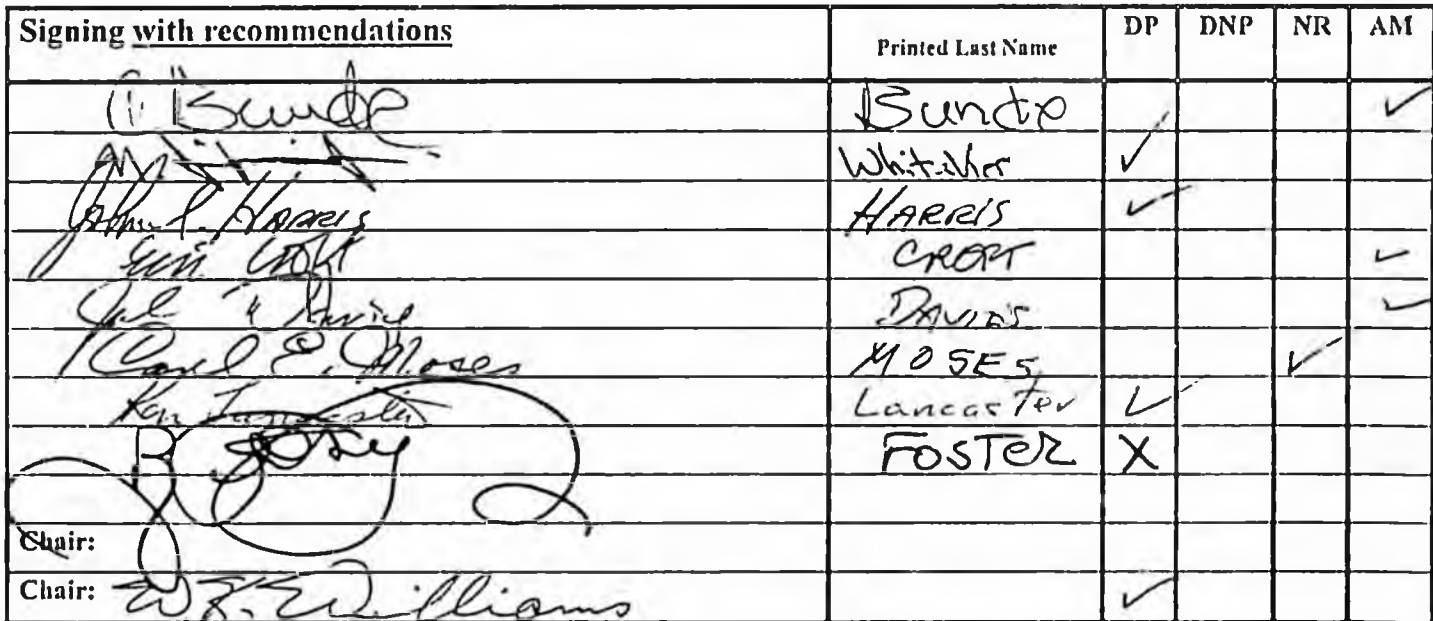 Signing with recommendations Printed Last Name DP DNP NR AM
Bunde Bunde ✓
Whitaker ✓
Harris HARRIS ✓
Croft CROFT ✓
Davies DAVIES ✓
Carl E. Moses MOSES ✓
Ron Lancaster Lancaster ✓
FOSTER X
Chair:
Chair: W.K. Williams ✓